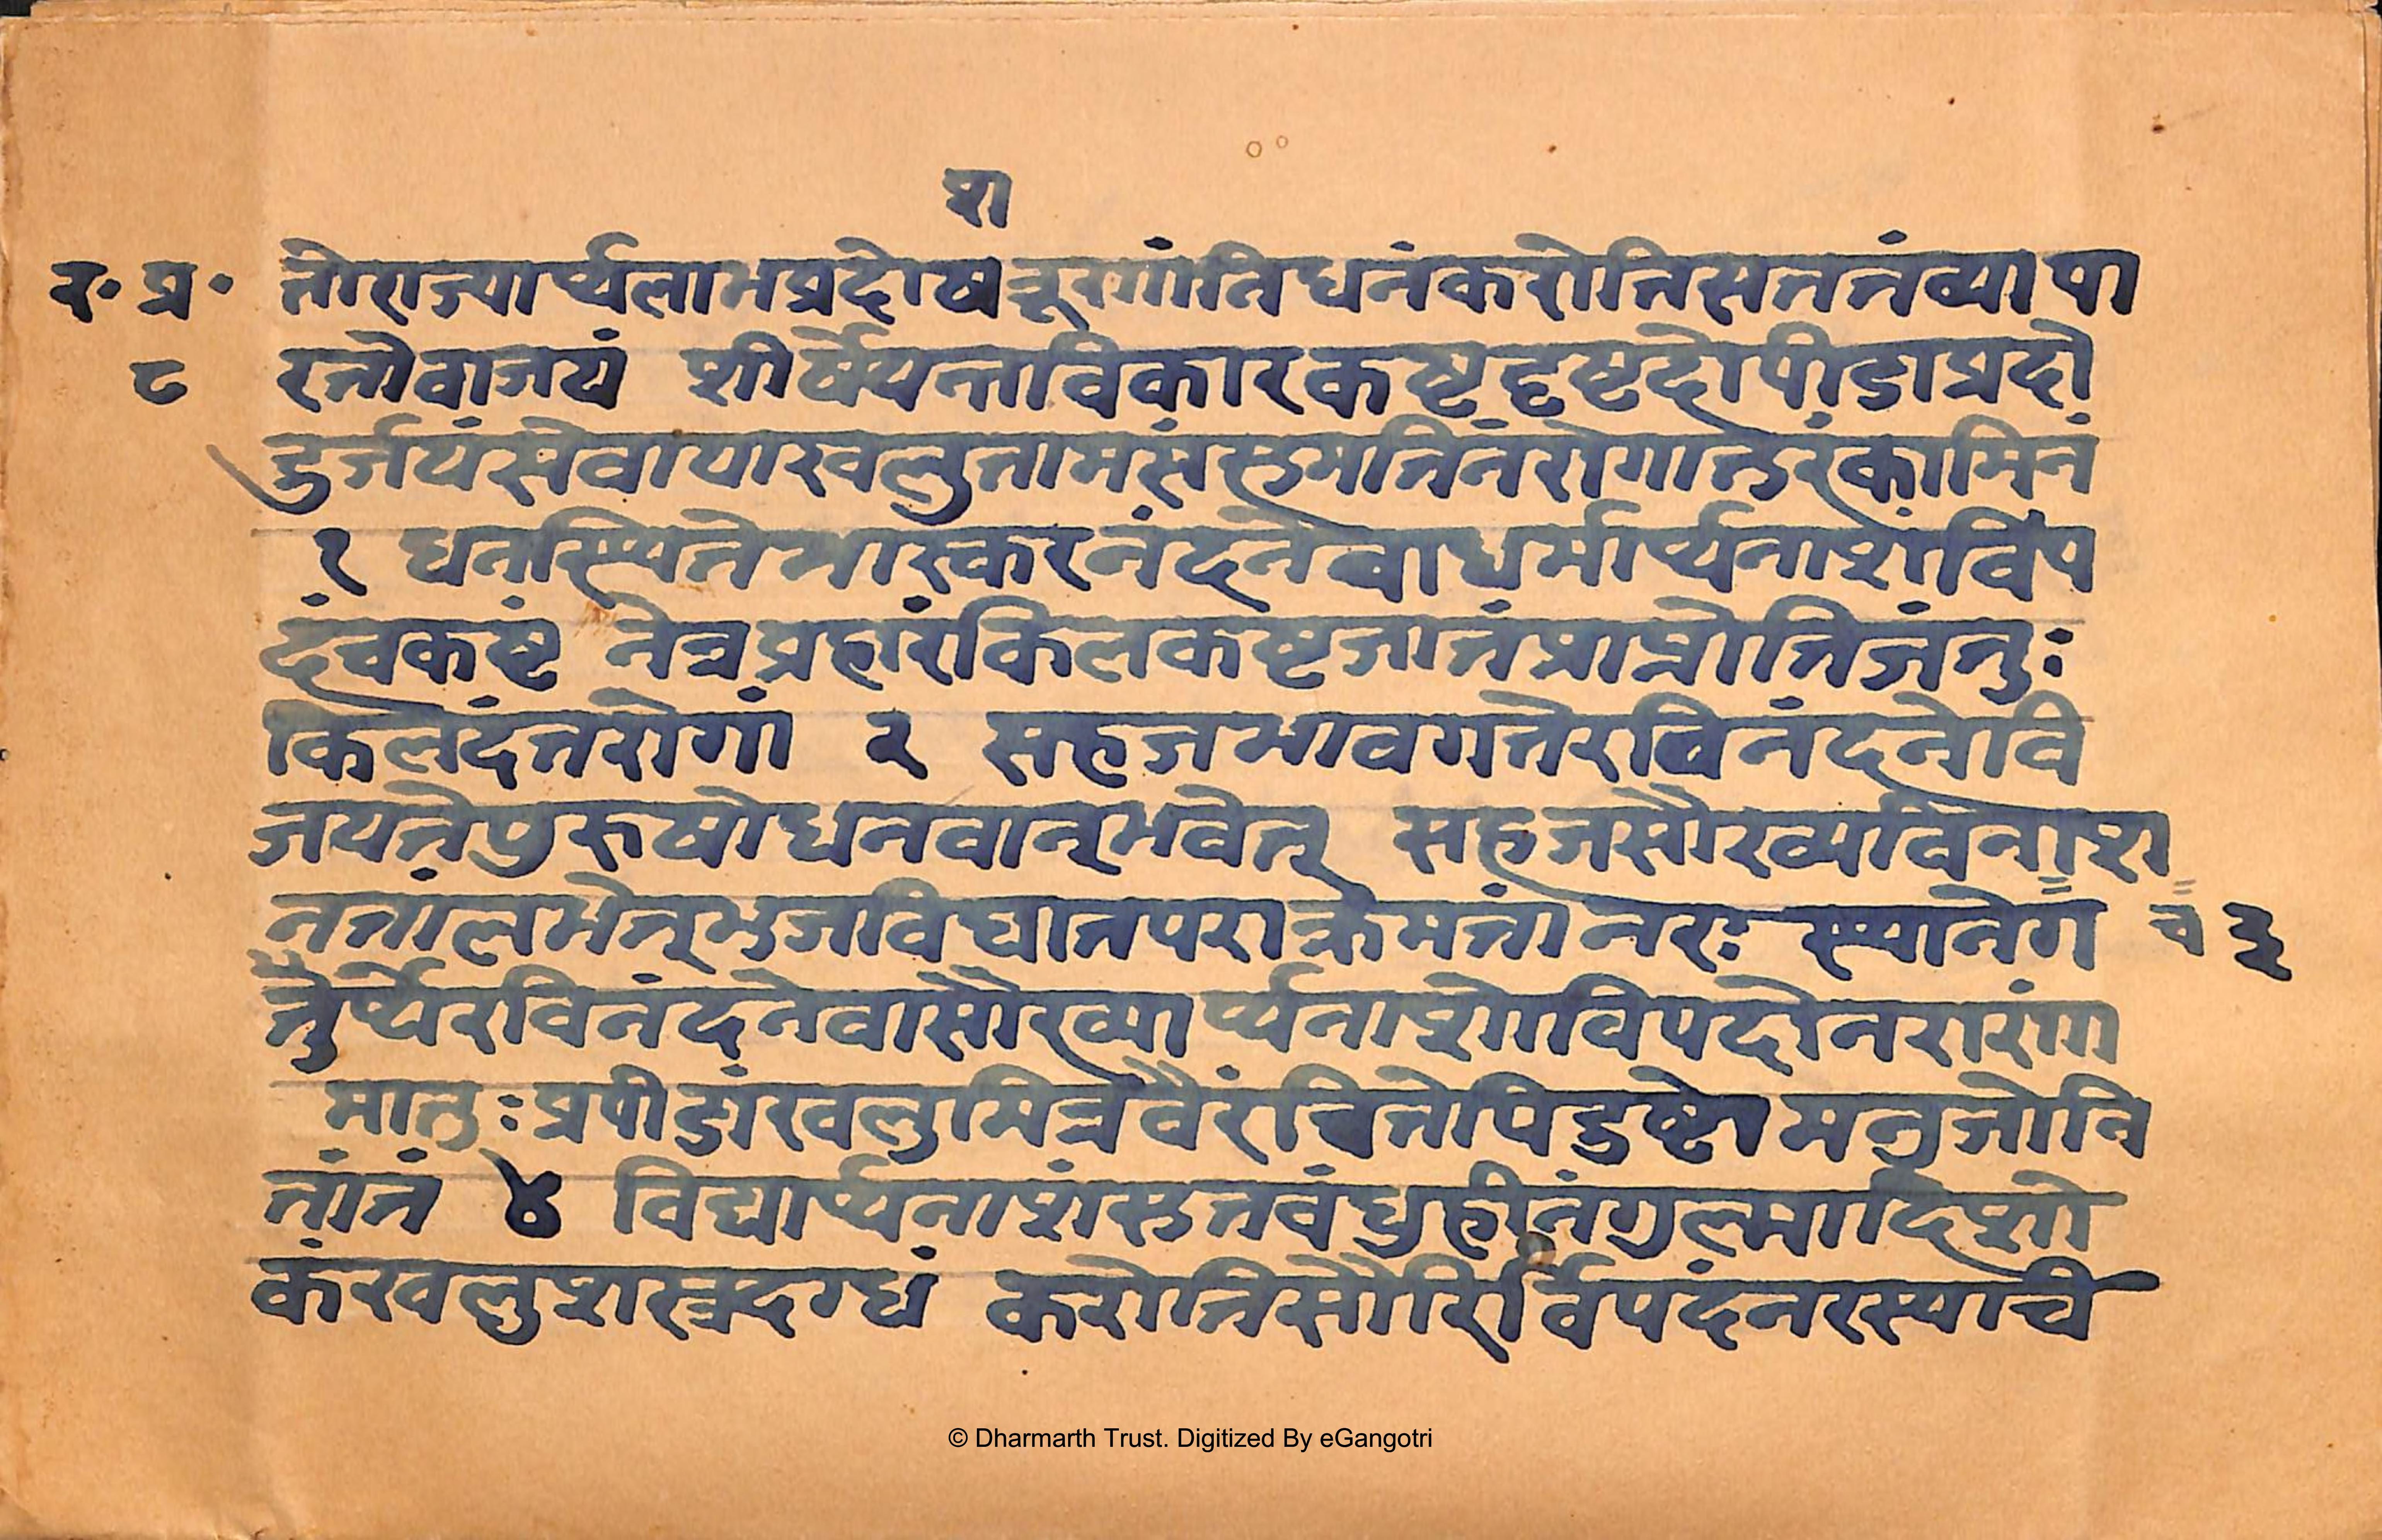 श
व॰ प्र॰ तोराज्यार्थलाभप्रदोषात्रूणांतिधनंकरोतिसततंव्यापा
८ रतोवाजयं शीर्षेयन्ताविकारकष्टहृष्टदोपीडाप्रदो
दुर्जयंसेवायाखलुतामसंसुमतिनंरोगातुरंकामिनं
१ धनस्थितेभास्करनंदनेवाधर्मार्थनाशंविप
दंचकष्टं नेत्रप्रहारंकिलकष्टजातंप्राप्नोतिजंतुः
किलदंतरोगां २ सहजभावगतेरविनंदनेवि
जयतेपुरुषोधनवान्भवेत् सहजसौख्यविनाश
नतांलभेत्भुजविघातपराक्रमतां नरः स्थानेग च ३
तुर्थेरविनंदनेवासौख्यार्थनाशोविपदोनराणां
मातुःप्रपीडांखलुमित्रवैरंचितोपिदुष्टोमनुजोनि
तांतं ४ विद्यार्थनाशंसुतबंधुहीनंगुल्मादिशो
कंखलुशस्त्रदग्धं करोतिसौरिर्विपदंनरस्याचि
© Dharmarth Trust. Digitized By eGangotri